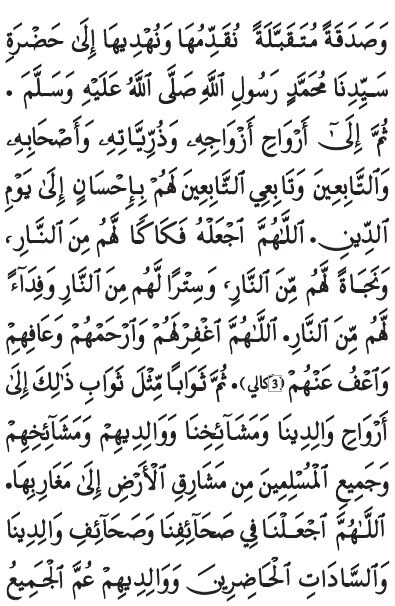 وَصَدَقَةً مُتَقَبَّلَةً نُقَدِّمُهَا وَنُهْدِيهَا إِلَىٰ حَضْرَةِ
سَيِّدِنَا مُحَمَّدٍ رَسُولِ اللَّهِ صَلَّى اللَّهُ عَلَيْهِ وَسَلَّمَ .
ثُمَّ إِلَىٰٓ أَرْوَاحِ أَزْوَاجِهِۦ وَذُرِّيَّاتِهِۦ وَأَصْحَابِهِۦ
وَالتَّابِعِينَ وَتَابِعِي التَّابِعِينَ لَهُمْ بِإِحْسَانٍ إِلَىٰ يَوْمِ
الدِّينِ. اَللّٰهُمَّ اجْعَلْهُ فَكَاكًا لَّهُمْ مِنَ النَّارِ،
وَنَجَاةً لَّهُم مِّنَ النَّارِ، وَسِتْرًا لَّهُم مِنَ النَّارِ وَفِدَآءً
لَّهُم مِّنَ النَّارِ. اَللّٰهُمَّ اغْفِرْلَهُمْ وَارْحَمْهُمْ وَعَافِهِمْ
وَاعْفُ عَنْهُمْ (3 كالي). ثُمَّ ثَوَابًا مِّثْلَ ثَوَابِ ذَٰلِكَ إِلَىٰ
أَرْوَاحِ وَالِدِينَا وَمَشَآئِخِنَا وَوَالِدِيهِمْ وَمَشَآئِخِهِمْ
وَجَمِيعِ الْمُسْلِمِينَ مِن مَشَارِقِ الْأَرْضِ إِلَىٰ مَغَارِبِهَا.
اَللّٰهُمَّ اجْعَلْنَا فِي صَحَآئِفِنَا وَصَحَآئِفِ وَالِدِينَا
وَالسَّادَاتِ الْحَاضِرِينَ وَوَالِدِيهِمْ عُمَّ الْجَمِيعُ